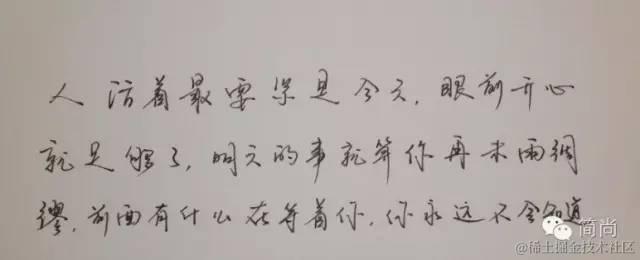 人活着最要紧是今天，眼前开心
就足够了，明天的事就算你再未雨绸
缪，前面有什么在等着你，你永远不会知道
简尚
@稀土掘金技术社区